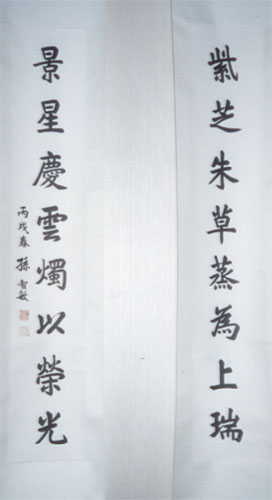 紫芝朱草蒸為上瑞
景星慶雲燭以榮光
丙戌春 孫智敏